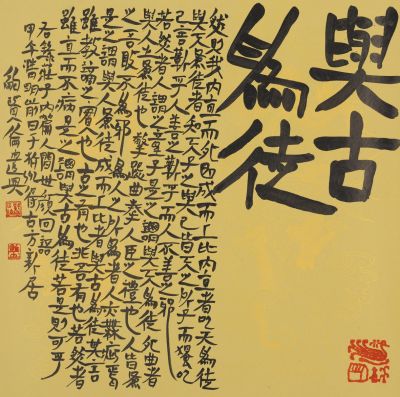 與古
為徒
然則我内直而外曲成而上比内直者與天為徒
與天為徒者知天子之與己皆天之所子而獨以
己言蘄乎而人善之蘄乎而人不善之邪
若然者人謂之童子是之謂與天為徒外曲者
與人之為徒也擎跽曲拳人臣之禮也人皆為
之吾敢不為邪為人之所為者人亦無疵焉
是之謂與人為徒成而上比者與古為徒其言
雖教謫之實也古之有也非吾有也若然者
雖直而不病是之謂與古為徒若是則可乎
右錄莊子内篇人間世顏回語
甲午清明前日于古方新居
鮑賢倫